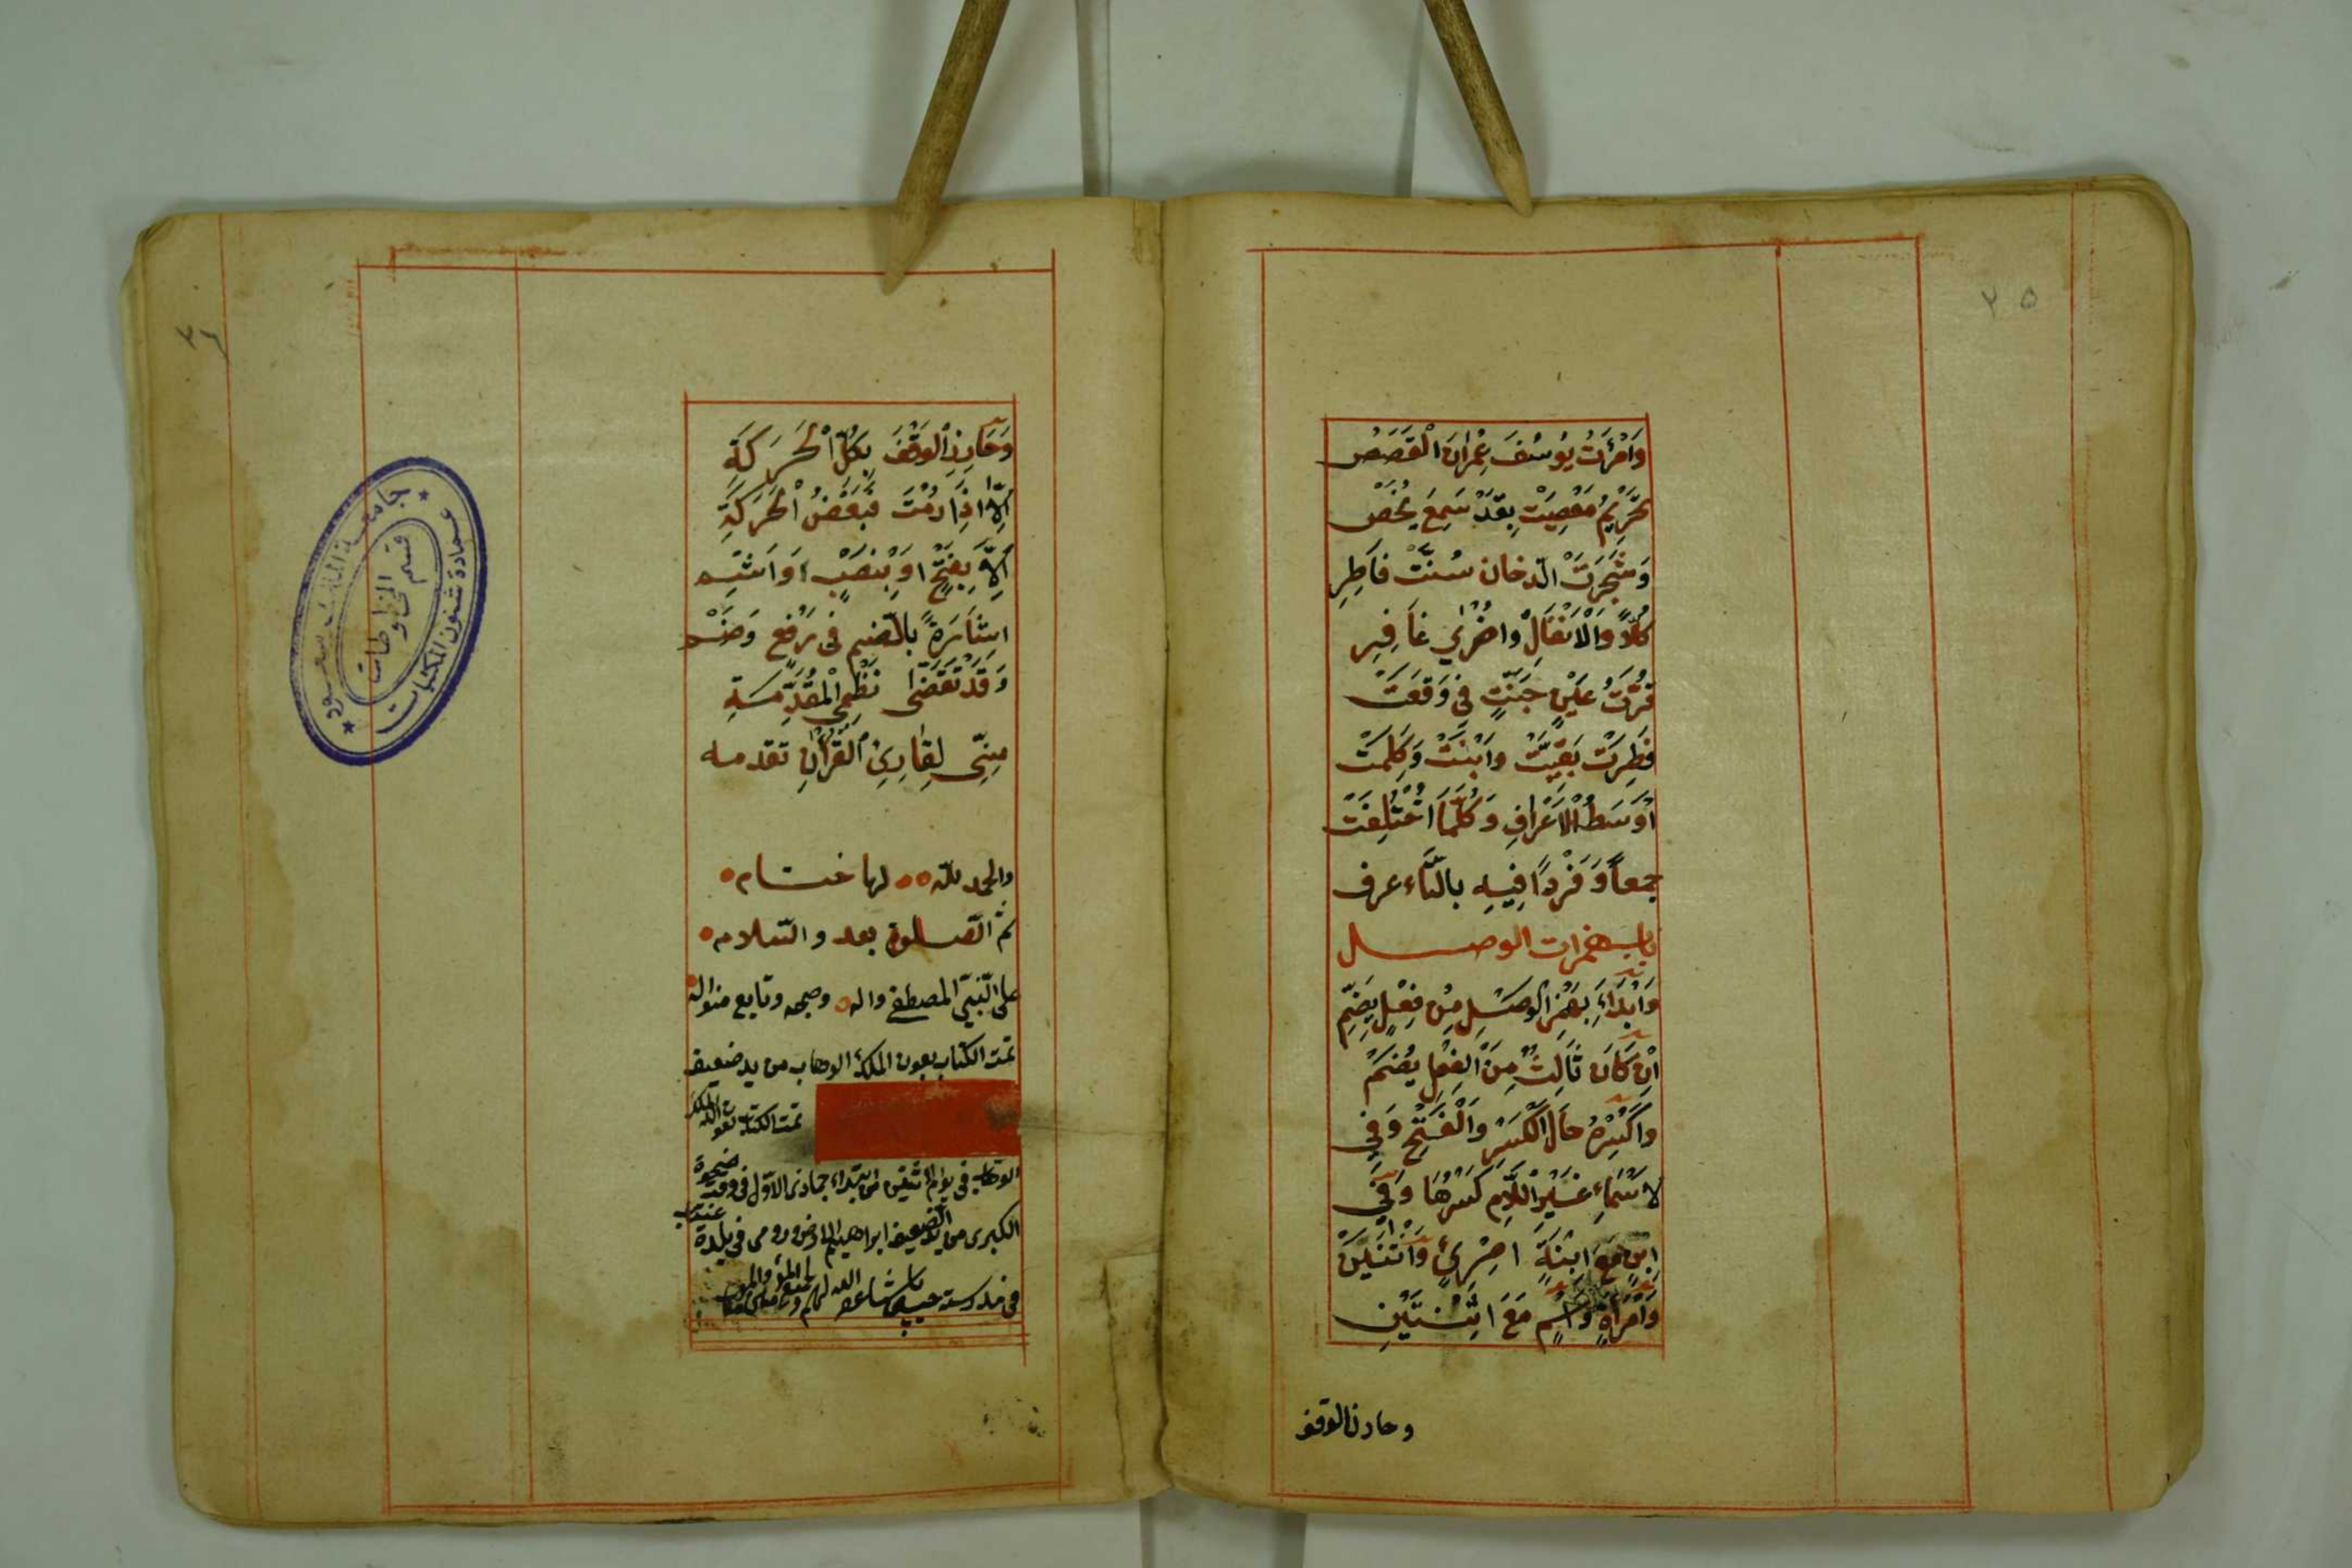 ٣٥
وَامْرَأَتُ يُوسُفَ عِمْرَانَ الْقَصَصِ
تَحْرِيْمُ مَعْصِيَتْ بِقَدْ سَمِعَ يُخَصْ
وَشَجَرَتَ الدّخان سُنَّتْ فَاطِرِ
كُلّاً وَالْاَنْفَالِ واخْرٰي غَافِرِ
قُرَّتُ عَيْنٍ جَنَّتٍ فِي وَقَعَتْ
فِطِرَتْ بَقِيَّتْ وَابْنَتْ وَكَلِمَتْ
اَوْسَطَ الْاَعْرَافِ وَكُلُّمَا اخْتُلِفَتْ
جمعاً وَفَرْداً فِيهِ بالتّاء عرف
باب همزات الوصل
وَابْدَاءْ بِهَمْزِ الْوَصْلِ مِنْ فِعْلٍ بِضَمّ
اِنْ كَانَ ثَالِثٌ مِنَ الْفِعْلِ يُضَمّْ
وَاكْسِرْهُ حَالَ الْكَسْرِ وَالْفَتْحِ وَفِي
لاَسْمَاءِ غَيْرَ اللَّامِ كَسْرُهَا وَفِي
ابْنٍ مَعَ ابْنَةٍ امْرِئٍ وَاثْنَيْنِ
وَامْرَأَةٍ وَاسْمٍ مَعَ اثْنَتَيْنِ
وحاذر الوقف
٣٦
وَحَاذِرِ الْوَقْفَ بِكُلِّ الْحَرَكَةِ
اِلّا اِذَا رُمْتَ فَبَعْضُ الْحَرَكَةِ
اِلَّا بِفَتْحٍ اَوْ بِنَصْبٍ وَاَشِمّ
اِشَارَةً بِالضَّمِّ فِي رَفْعٍ وَضَمّْ
وَقَدْ تَقَضّٰى نَظْمِي الْمُقَدِّمَةِ
مِنِّي لِقَارِئِ الْقُرْاٰنِ تقدمه
والحمد للّه لها ختام
ثم الصّلوة بعد والسّلام
على النّبيّ المصطفى واله وصحبه وتابع منواله
تمت الكتاب بعون الملك الوهاب من يد ضعيف
تمت الكتاب بعون الله الملك
الوهاب في يوم اثنين من ابتداء جماذى الاوّل في وقت ضحوة
الكبرى من يد الضعيف ابراهيم في بلدة عنتاب
في مدرسة
جامعة الملك سعود
عمادة شئون المكتبات
قسم المخطوطات